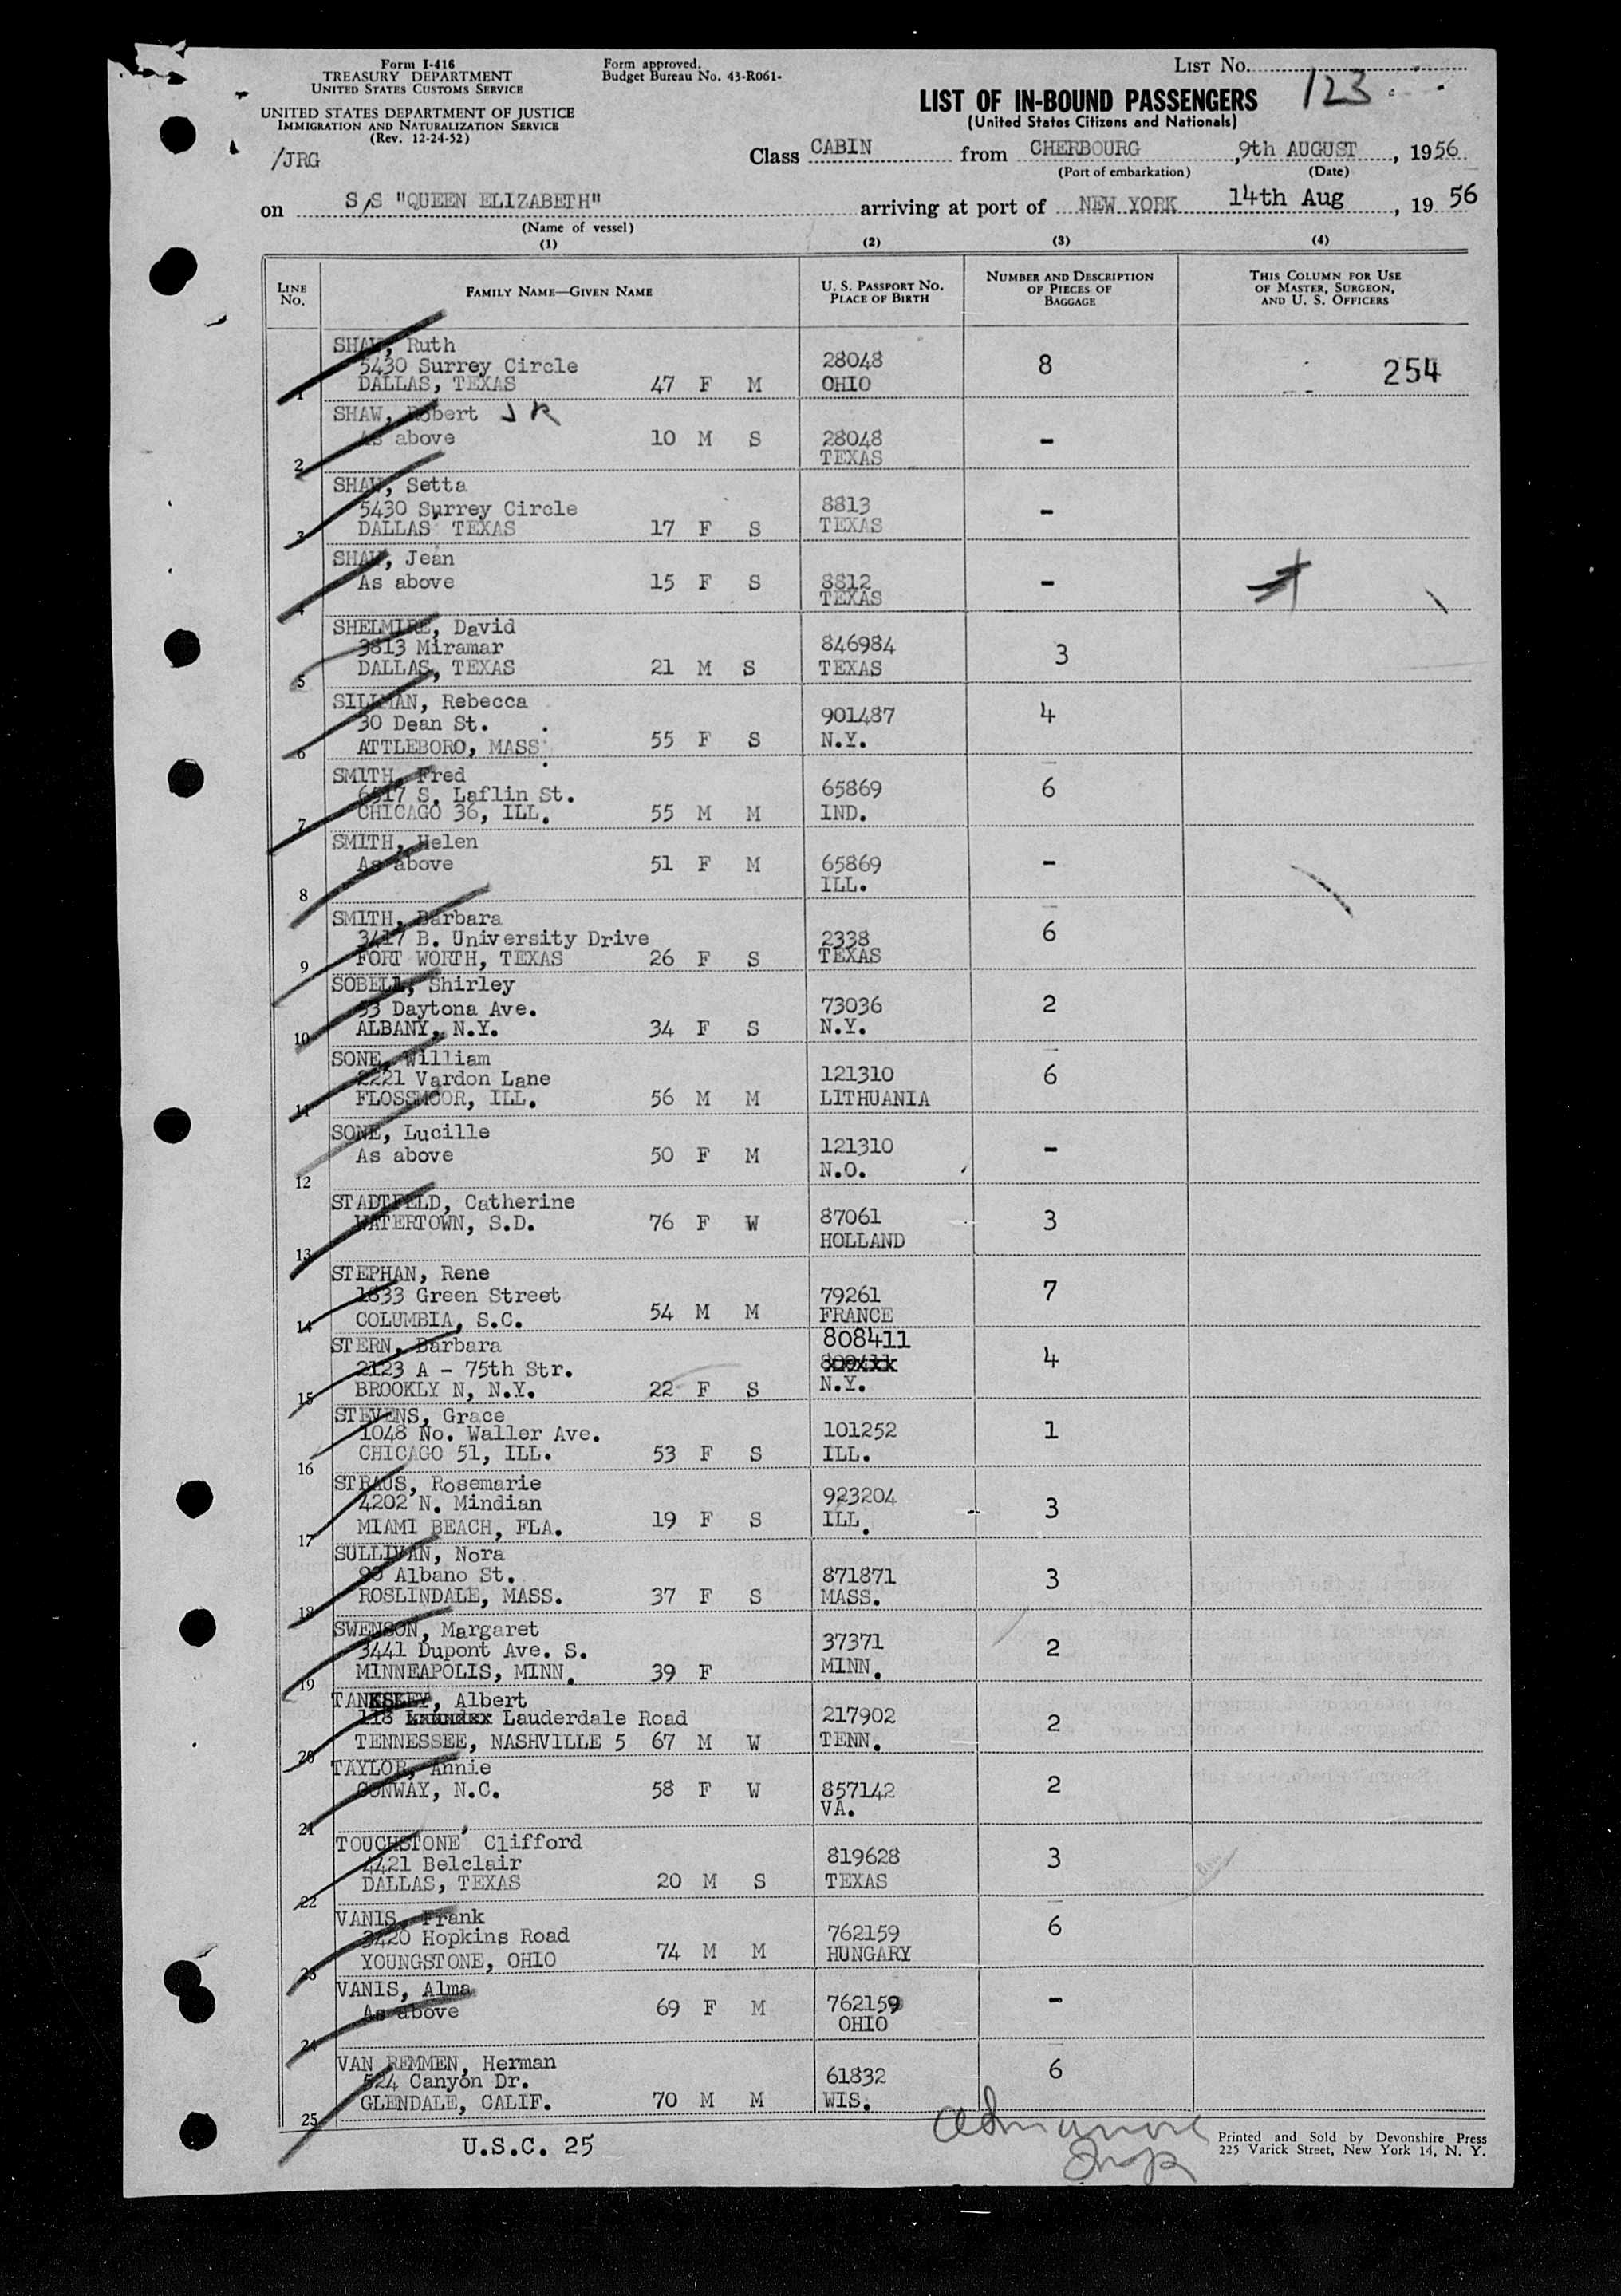 Form I-416
TREASURY DEPARTMENT
UNITED STATES CUSTOMS SERVICE
UNITED STATES DEPARTMENT OF JUSTICE
IMMIGRATION AND NATURALIZATION SERVICE
(Rev. 12-24-52)
/JRG
Form approved.
Budget Bureau No. 43-R061-
LIST NO.
123
LIST OF IN-BOUND PASSENGERS
(United States Citizens and Nationals)
Class CABIN from CHERBOURG, 9th AUGUST, 1956
(Port of embarkation) (Date)
on S/S "QUEEN ELIZABETH" arriving at port of NEW YORK 14th Aug, 19 56
(Name of vessel)
(1) (2) (3) (4)
LINE NO. FAMILY NAME—GIVEN NAME U. S. PASSPORT NO. PLACE OF BIRTH NUMBER AND DESCRIPTION OF PIECES OF BAGGAGE THIS COLUMN FOR USE OF MASTER, SURGEON, AND U. S. OFFICERS
SHAW, Ruth
5430 Surrey Circle 28048 8 254
1 DALLAS, TEXAS 47 F M OHIO
SHAW, Robert JR
As above 10 M S 28048 -
2 TEXAS
SHAW, Setta
5430 Surrey Circle 8813 -
3 DALLAS, TEXAS 17 F S TEXAS
SHAW, Jean
As above 15 F S 8812 -
4 TEXAS
SHELMIRE, David
3813 Miramar 846984 3
5 DALLAS, TEXAS 21 M S TEXAS
SILLMAN, Rebecca
30 Dean St. 901487 4
6 ATTLEBORO, MASS. 55 F S N.Y.
SMITH, Fred
6517 S. Laflin St. 65869 6
7 CHICAGO 36, ILL. 55 M M IND.
SMITH, Helen
As above 51 F M 65869 -
8 ILL.
SMITH, Barbara
3417 B. University Drive 2338 6
9 FORT WORTH, TEXAS 26 F S TEXAS
SOBELL, Shirley
53 Daytona Ave. 73036 2
10 ALBANY, N.Y. 34 F S N.Y.
SONE, William
2221 Vardon Lane 121310 6
11 FLOSSMOOR, ILL. 56 M M LITHUANIA
SONE, Lucille
As above 50 F M 121310 -
12 N.O.
STADTFELD, Catherine
WATERTOWN, S.D. 76 F W 87061 3
13 HOLLAND
STEPHAN, Rene
1833 Green Street 79261 7
14 COLUMBIA, S.C. 54 M M FRANCE
STERN, Barbara 808411
2123 A - 75th Str. 4
15 BROOKLY N, N.Y. 22 F S N.Y.
STEVENS, Grace
1048 No. Waller Ave. 101252 1
16 CHICAGO 51, ILL. 53 F S ILL.
STRAUS, Rosemarie
4202 N. Mindian 923204 3
17 MIAMI BEACH, FLA. 19 F S ILL.
SULLIVAN, Nora
90 Albano St. 871871 3
18 ROSLINDALE, MASS. 37 F S MASS.
SWENSON, Margaret
3441 Dupont Ave. S. 37371 2
19 MINNEAPOLIS, MINN. 39 F MINN.
TANKSLEY, Albert
118 Lauderdale Road 217902 2
20 TENNESSEE, NASHVILLE 5 67 M W TENN.
TAYLOR, Annie
CONWAY, N.C. 58 F W 857142 2
21 VA.
TOUCHSTONE, Clifford
4421 Belclair 819628 3
22 DALLAS, TEXAS 20 M S TEXAS
VANIS, Frank
3420 Hopkins Road 762159 6
23 YOUNGSTONE, OHIO 74 M M HUNGARY
VANIS, Alma
As above 69 F M 762159 -
24 OHIO
VAN REMMEN, Herman
524 Canyon Dr. 61832 6
25 GLENDALE, CALIF. 70 M M WIS.
U.S.C. 25
Insp
Printed and Sold by Devonshire Press
225 Varick Street, New York 14, N. Y.